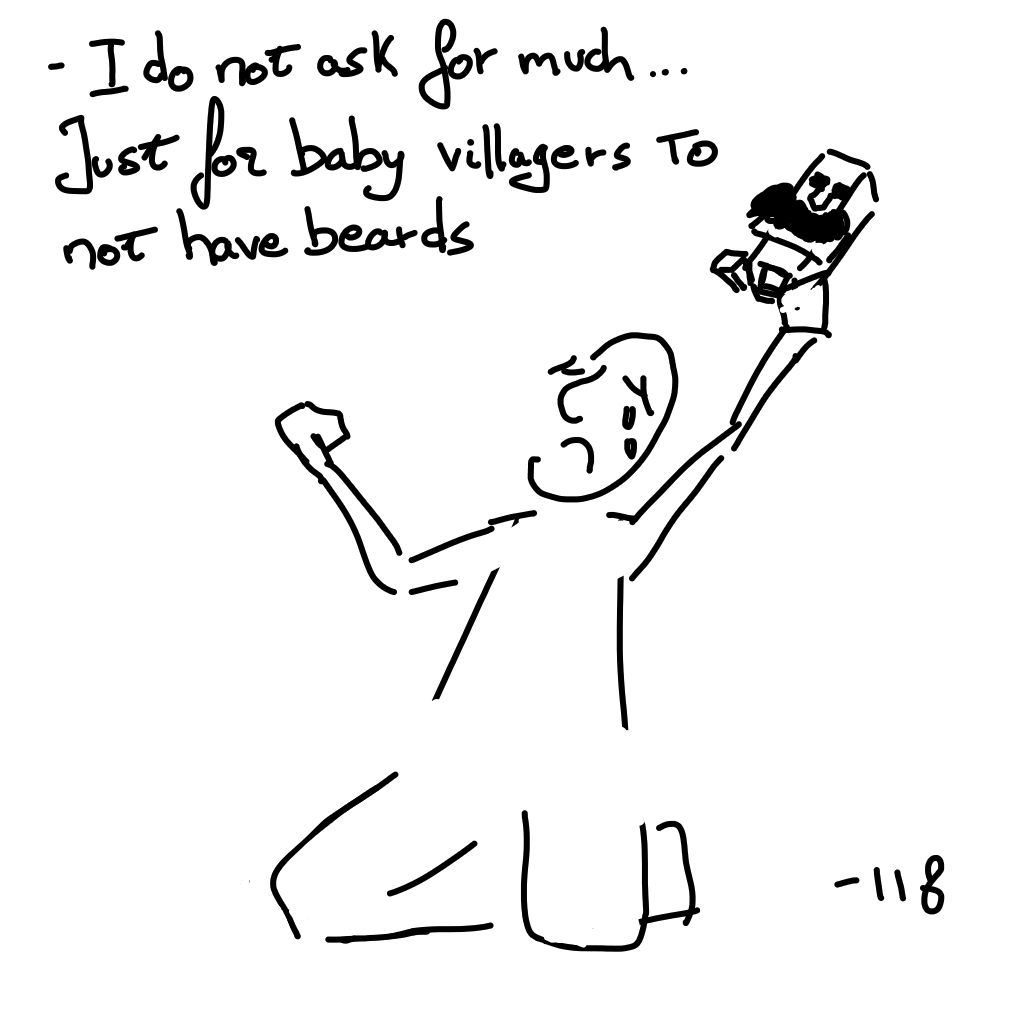 - I do not ask for much...
Just for baby villagers to
not have beards
-118